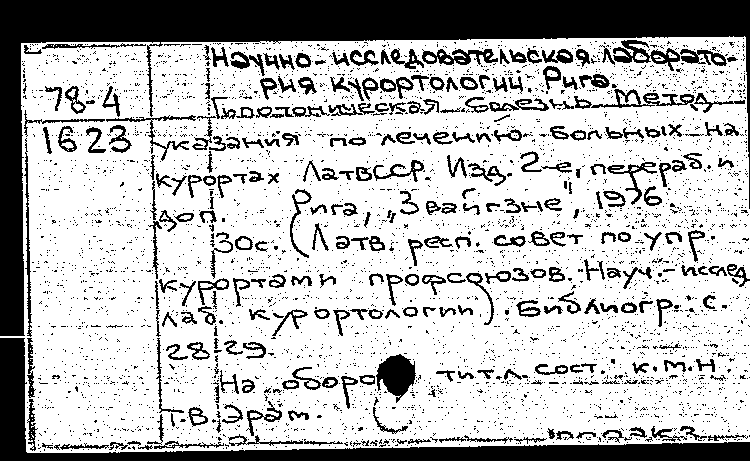 Научно-исследовательская лаборато-
рия курортологии. Рига.
78-4
Гипотоническая болезнь. Метод.
1623
указания по лечению больных на
курортах ЛатвССР. Изд. 2-е, перераб. и
доп. Рига, "Звайгзне", 1976.
30с. (Латв. респ. совет по упр.
курортами профсоюзов. Науч.-исслед.
лаб. курортологии). Библиогр.: с.
28-29.
На оборо тит.л. сост.: к.м.н.
Т.В. Эрам.